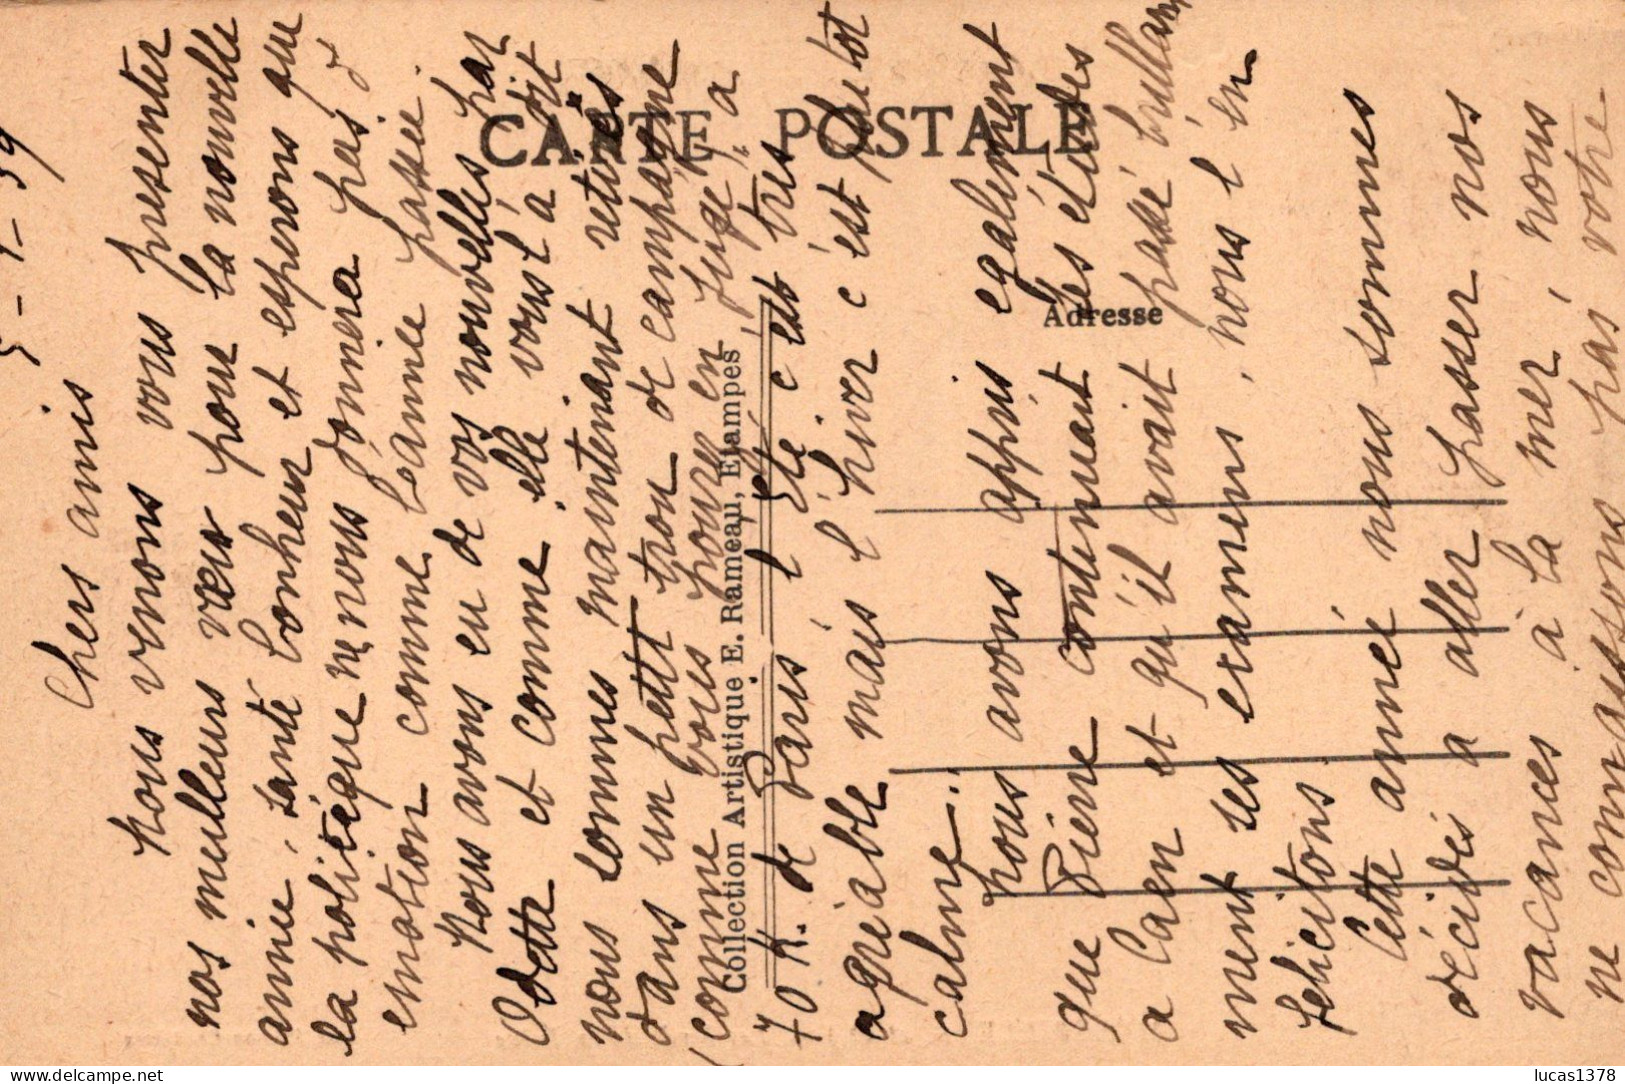 5-1-39
Chers amis
Nous venons vous presenter
nos meilleurs vœux pour la nouvelle
année, santé bonheur et esperons que
la politique ne nous donnera pas d
emotion comme l'année passée.
Nous avons eu de vos nouvelles par
Odette et comme elle vous l'a dit
nous sommes maintenant retirés
dans un petit trou de campagne
(comme vous pouvez en juger) à
70 K. de Paris l'Eté c'est très
agréable mais l'hiver c'est plutot
calme.
Nous avons appris egalement
que Pierre continuait ses études
a Caen et qu'il avait passé brillam
ment ses examens, nous l'en
felicitons.
Cette année nous sommes
décidés a aller passer nos
vacances à la mer, nous
ne connaissons pas votre
CARTE POSTALE
Adresse
Collection Artistique E. Rameau, Etampes
lucas1378